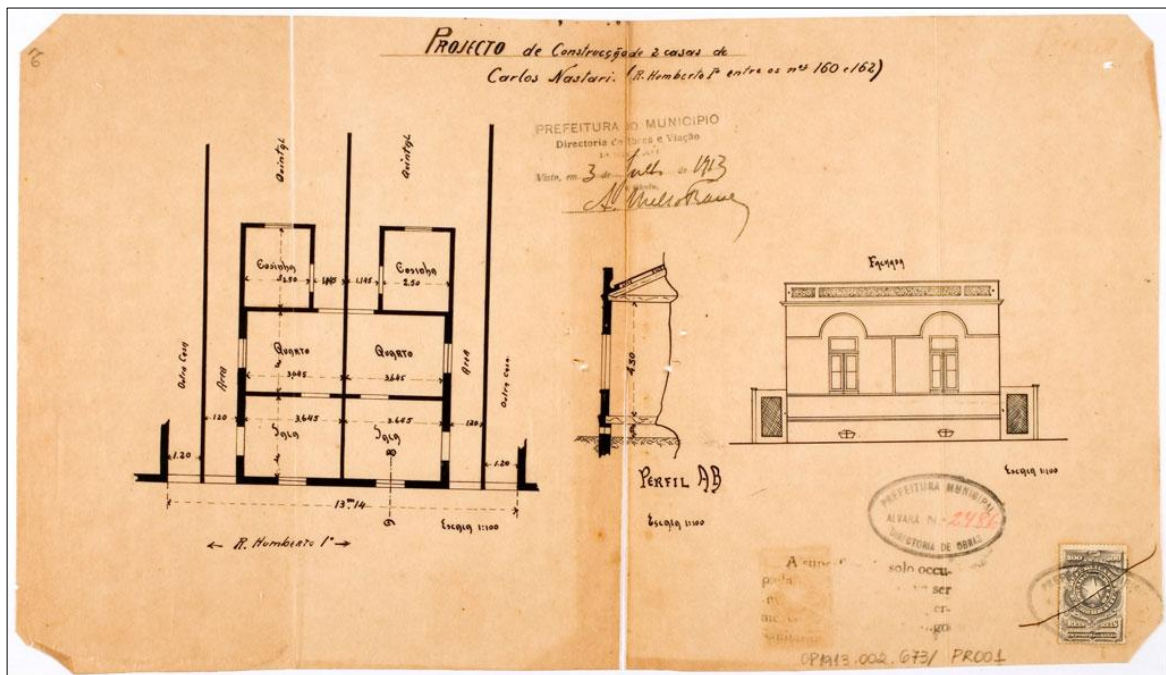 PROJECTO de Construcção de 2 casas de
Carlos Nastari. (R. Homberto Iº entre os nos 160 e 162)
PREFEITURA DO MUNICIPIO
Directoria de Obras e Viação
Visto, em 3 de Julho de 1913
Quintal
Quintal
Cosinha
2.50
1.145
1.145
Cosinha
2.50
Outra Casa
Area
Quarto
3.645
Quarto
3.645
Area
Outra Casa
1.20
Sala
3.645
Sala
3.645
1.20
1.20
1.20
13m.14
Escala 1:100
← R. Homberto Iº →
4.50
PERFIL AB
Escala 1:100
Fachada
Escala 1:100
PREFEITURA MUNICIPAL
ALVARÁ Nº 2486
DIRECTORIA DE OBRAS
A solo occu-
ser
OP1913.002.673/ PR001